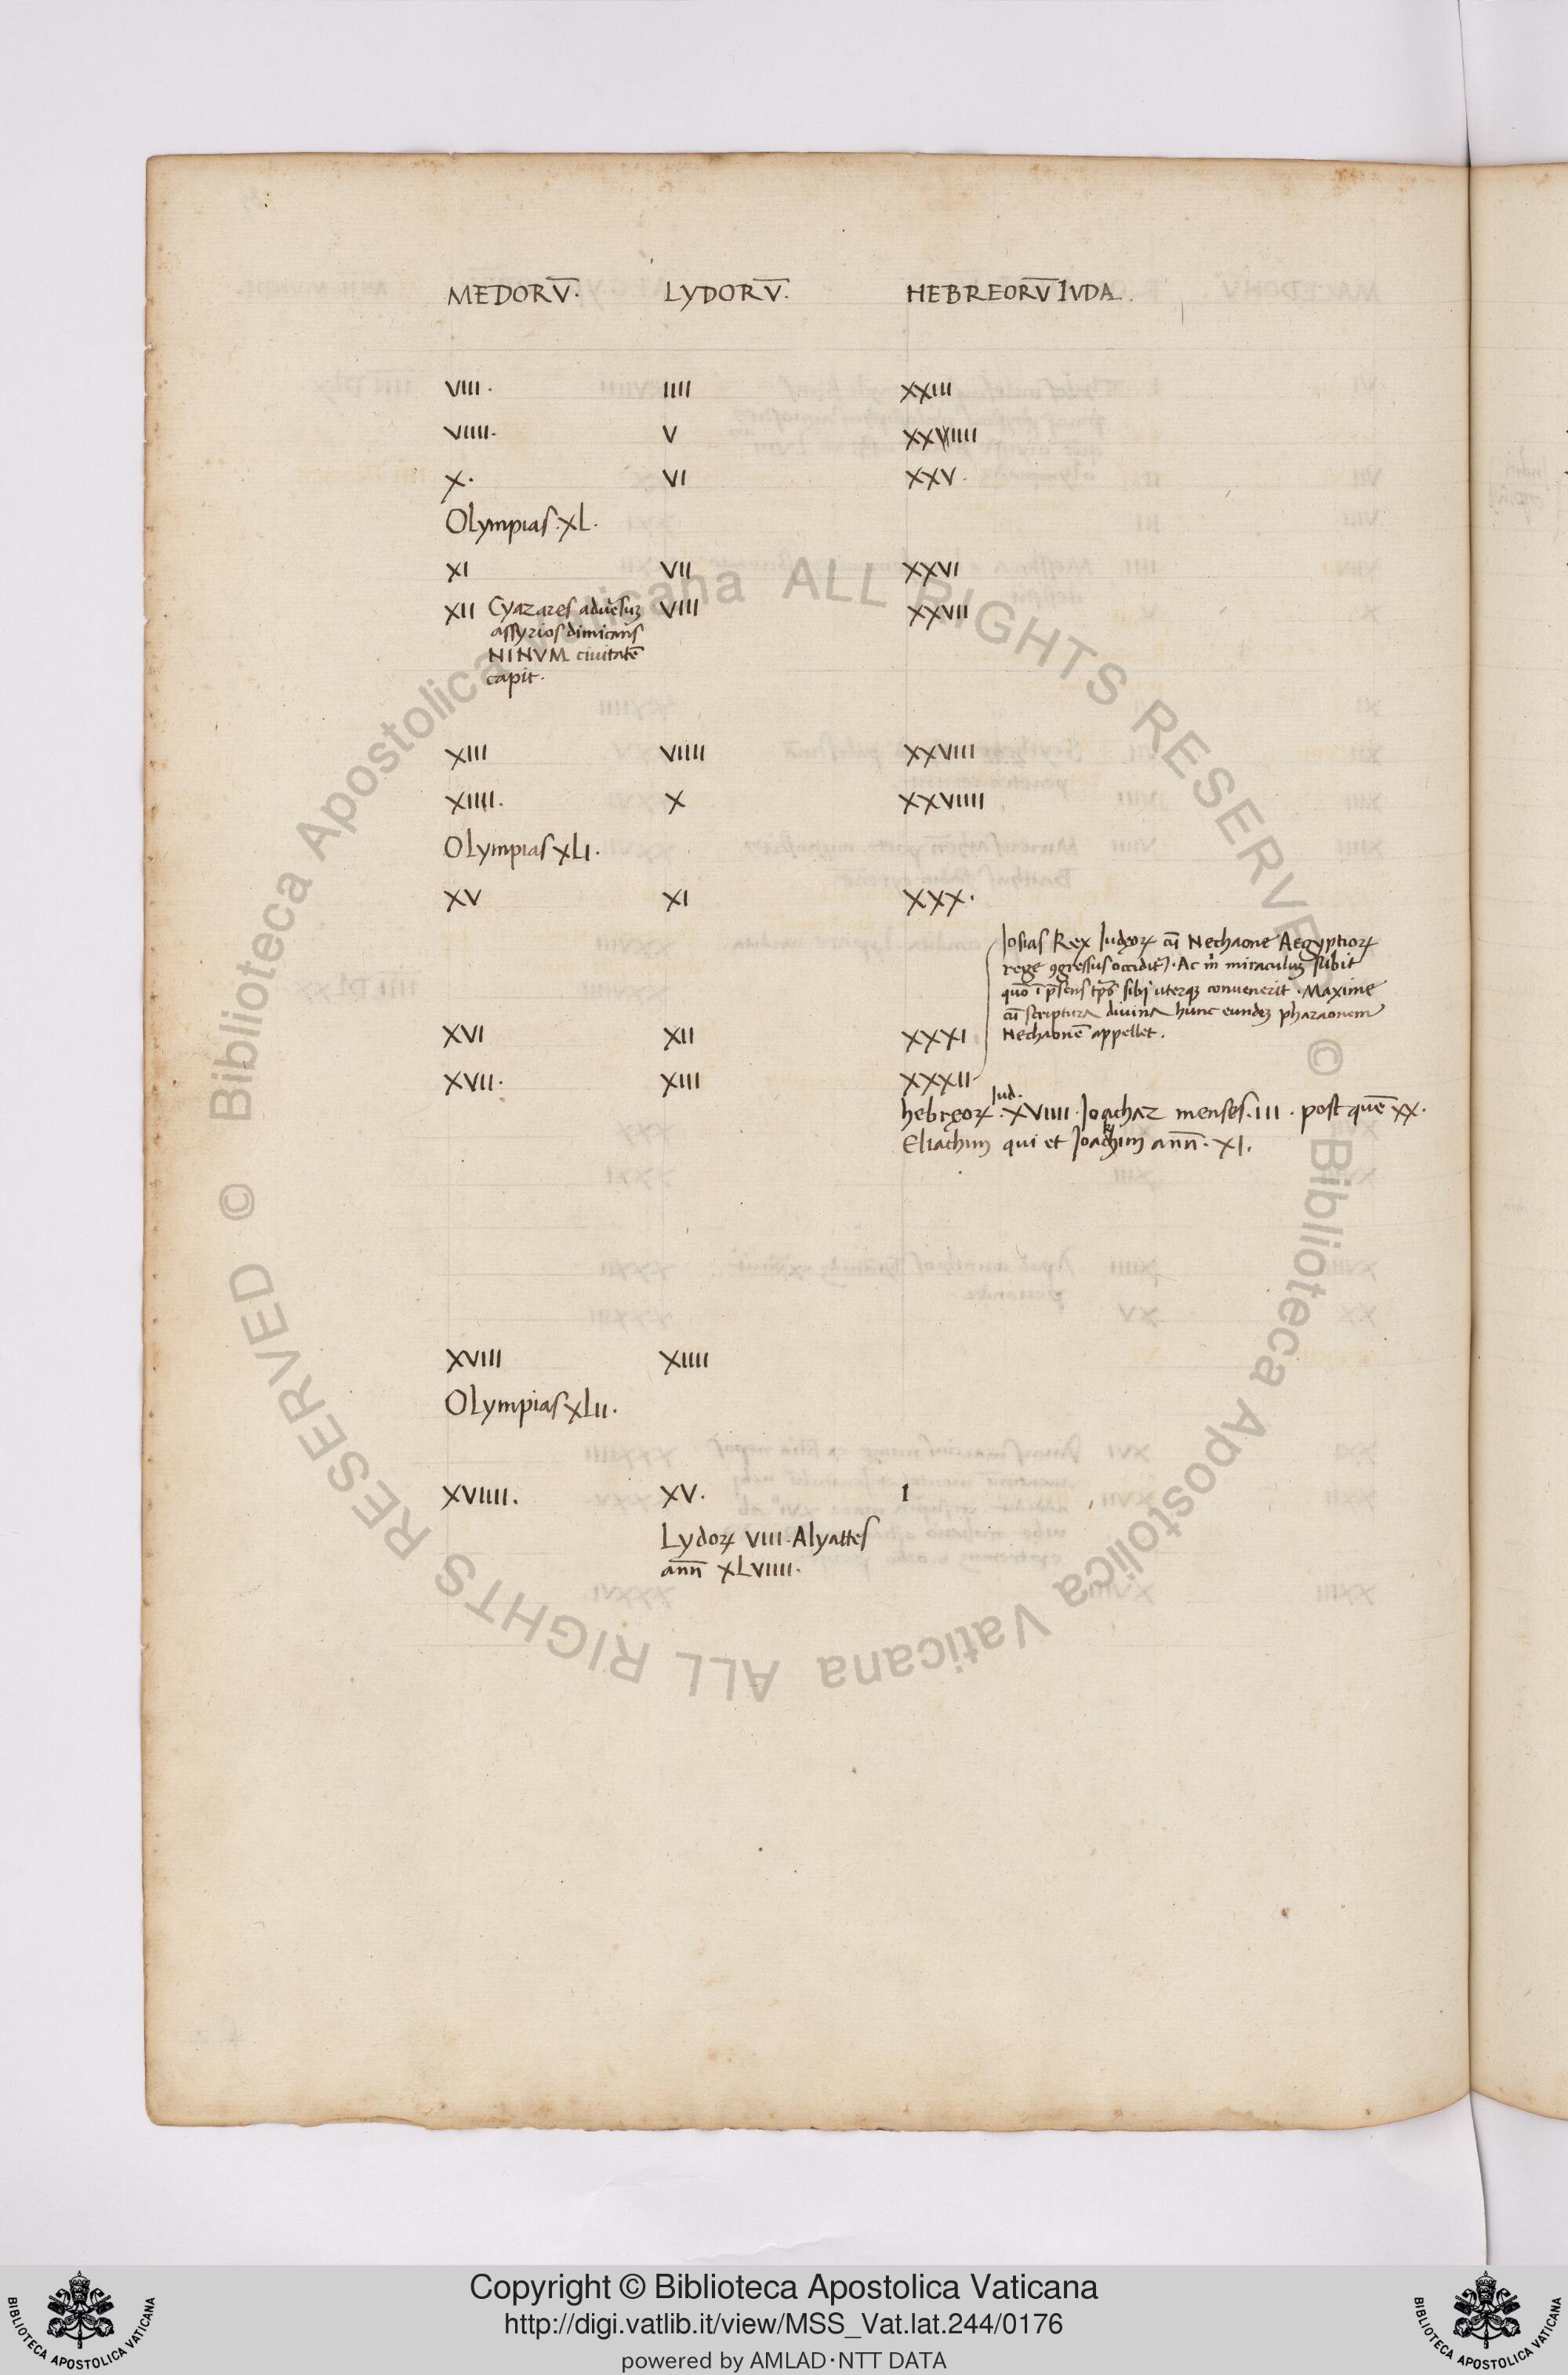 MEDORV̄. LYDORV̄. HEBREORV̄ IVDA.
VIII. IIII XXIII
VIIII. V XXVIIII
X. VI XXV.
Olympias. XL.
XI VII XXVI
XII Cyazares aduersuʒ VIII XXVII
assyrios dimicans
NINVM ciuitatē
capit.
XIII VIIII XXVIII
XIIII. X XXVIIII
Olympias XLI.
XV XI XXX.
Iosias Rex Iudęoꝝ cū Nechaone Aegyptioꝝ
rege ꝯgressus occidit᷑. Ac m̄ miraculuʒ subit
quō ī p̄sens tp̄s sibi uterqʒ conuenerit. Maxime
cū scriptura diuina hunc eundeʒ pharaonem
XVI XII XXXI Nechaonē appellet.
XVII. XIII XXXII
Iud.
hebręoꝝ. XVIIII. Joachaz menses. III. post quē XX.
Eliachim qui et Joachim ann̄. XI.
XVIII XIIII
Olympias XLII.
XVIIII. XV. I
Lydoꝝ VIII. Alyattes
ann̄ XLVIIII.
© Biblioteca Apostolica Vaticana ALL RIGHTS RESERVED
© Biblioteca Apostolica Vaticana ALL RIGHTS RESERVED
Copyright © Biblioteca Apostolica Vaticana
http://digi.vatlib.it/view/MSS_Vat.lat.244/0176
powered by AMLAD·NTT DATA
BIBLIOTECA APOSTOLICA VATICANA
BIBLIOTECA APOSTOLICA VATICANA